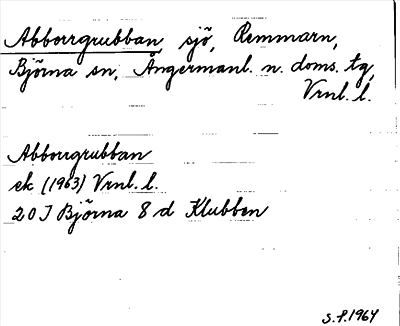 Abborrgrubban, sjö, Remmarn,
Björna sn, Ångermanl. n. doms. tg,
Vrnl. l.
Abborrgrubban
ek (1963) Vrnl. l.
20 I Björna 8 d Klubben
S.P. 1964